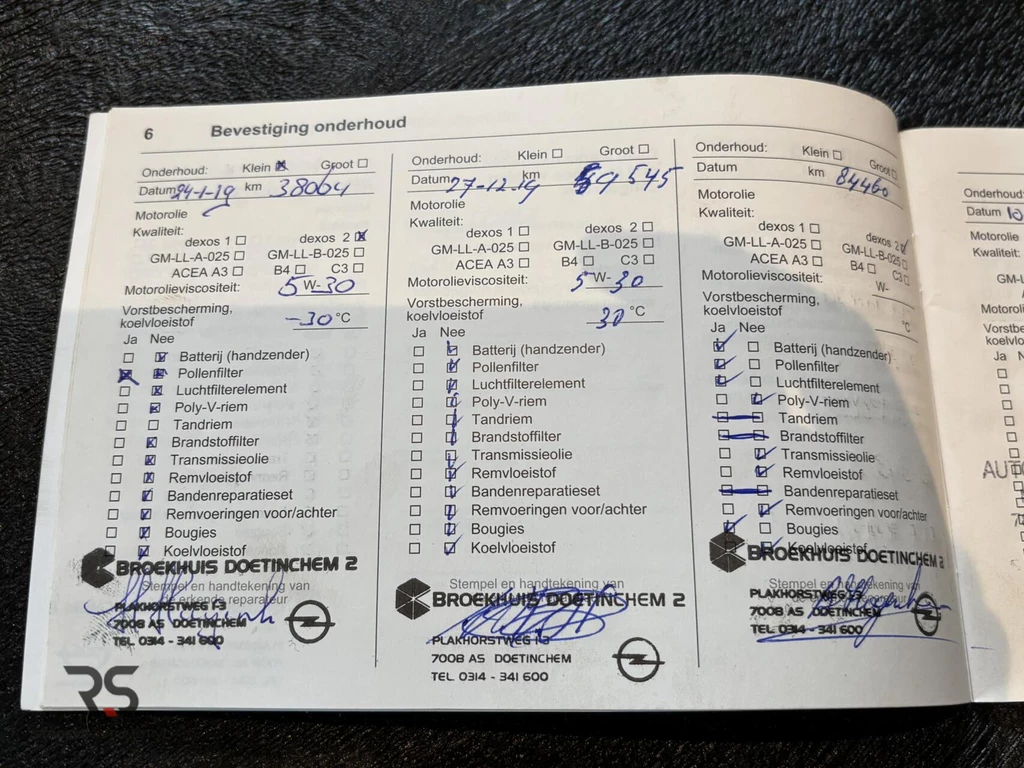 6 Bevestiging onderhoud
Onderhoud: Klein Groot
Datum 24-1-19 km 38064
Motorolie
Kwaliteit:
dexos 1 dexos 2
GM-LL-A-025 GM-LL-B-025
ACEA A3 B4 C3
Motorolieviscositeit: 5 W-30
Vorstbescherming,
koelvloeistof -30 °C
Ja Nee
Batterij (handzender)
Pollenfilter
Luchtfilterelement
Poly-V-riem
Tandriem
Brandstoffilter
Transmissieolie
Remvloeistof
Bandenreparatieset
Remvoeringen voor/achter
Bougies
Koelvloeistof
BROEKHUIS DOETINCHEM 2
Stempel en handtekening van
de erkende reparateur
PLAKHORSTWEG 1-3
7008 AS DOETINCHEM
TEL. 0314 - 341 600
Onderhoud: Klein Groot
Datum 27-12-19 km 59545
Motorolie
Kwaliteit:
dexos 1 dexos 2
GM-LL-A-025 GM-LL-B-025
ACEA A3 B4 C3
Motorolieviscositeit: 5 W-30
Vorstbescherming,
koelvloeistof 30 °C
Ja Nee
Batterij (handzender)
Pollenfilter
Luchtfilterelement
Poly-V-riem
Tandriem
Brandstoffilter
Transmissieolie
Remvloeistof
Bandenreparatieset
Remvoeringen voor/achter
Bougies
Koelvloeistof
Stempel en handtekening van
BROEKHUIS DOETINCHEM 2
PLAKHORSTWEG 1-3
7008 AS DOETINCHEM
TEL. 0314 - 341 600
Onderhoud: Klein Groot
Datum km 84460
Motorolie
Kwaliteit:
dexos 1 dexos 2
GM-LL-A-025 GM-LL-B-025
ACEA A3 B4 C3
Motorolieviscositeit: W-
Vorstbescherming,
koelvloeistof °C
Ja Nee
Batterij (handzender)
Pollenfilter
Luchtfilterelement
Poly-V-riem
Tandriem
Brandstoffilter
Transmissieolie
Remvloeistof
Bandenreparatieset
Remvoeringen voor/achter
Bougies
Koelvloeistof
BROEKHUIS DOETINCHEM 2
Stempel en handtekening van
PLAKHORSTWEG 1-3
7008 AS DOETINCHEM
TEL. 0314 - 341 600
Onderhoud:
Datum
Motorolie
Kwaliteit:
Ja
RS